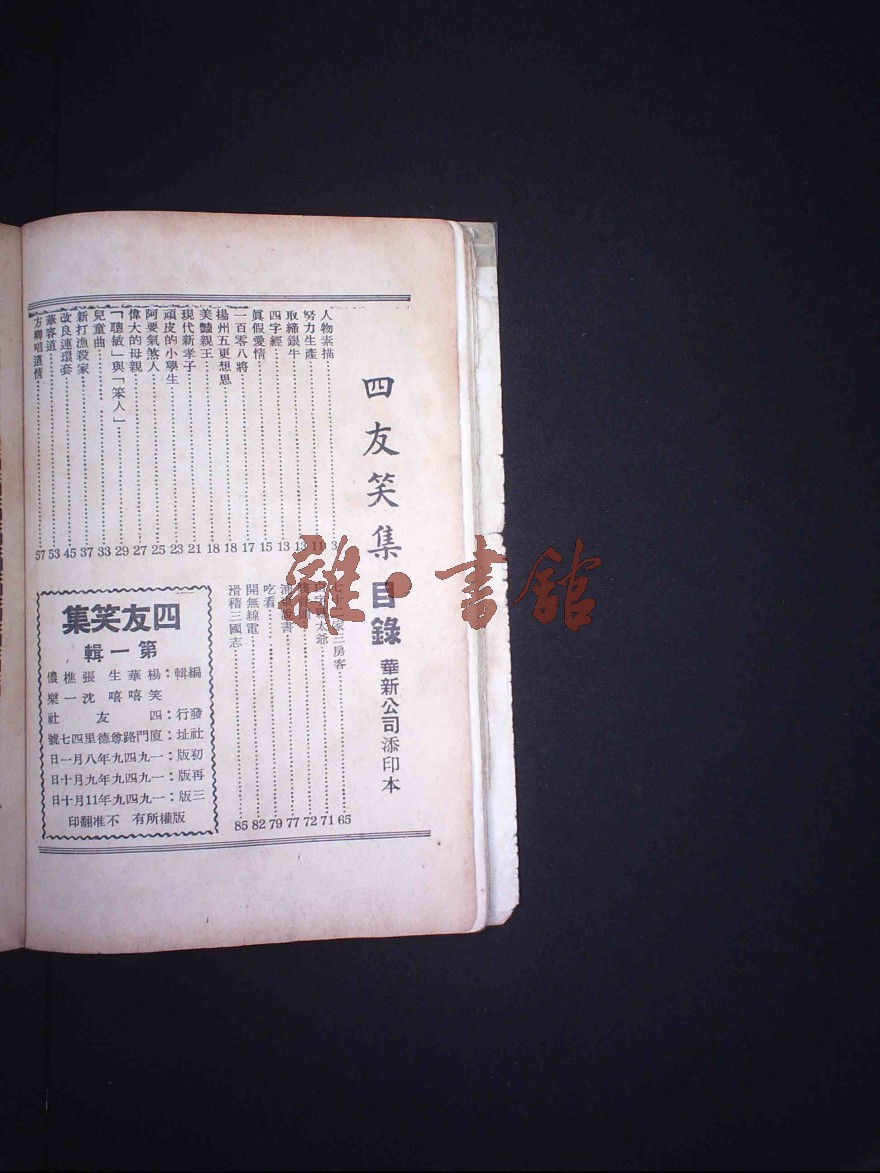 四友笑集 目錄 華新公司添印本
人物素描 3
努力生產 11
取締銀牛 13
四字經 13
眞假愛情 15
一百零八將 17
揚州五更想思 18
美豔親王 18
現代新孝子 21
頑皮的小學生 23
阿要氣煞人 25
偉大的母親 27
「聰敏」與「笨人」 29
兒童曲 33
新打漁殺家 37
改良連環套 45
華容道 53
方卿唱道情 57
家三房客 65
太爺 71
72
書 77
吃看 79
開無線電 82
滑稽三國志 85
四友笑集
第一輯
編輯：楊華生 張樵儂
笑嘻嘻 沈一樂
發行：四友社
社址：廈門路尊德里四七號
初版：一九四九年八月一日
再版：一九四九年九月十日
三版：一九四九年11月十日
版權所有 不准翻印
雜·書館